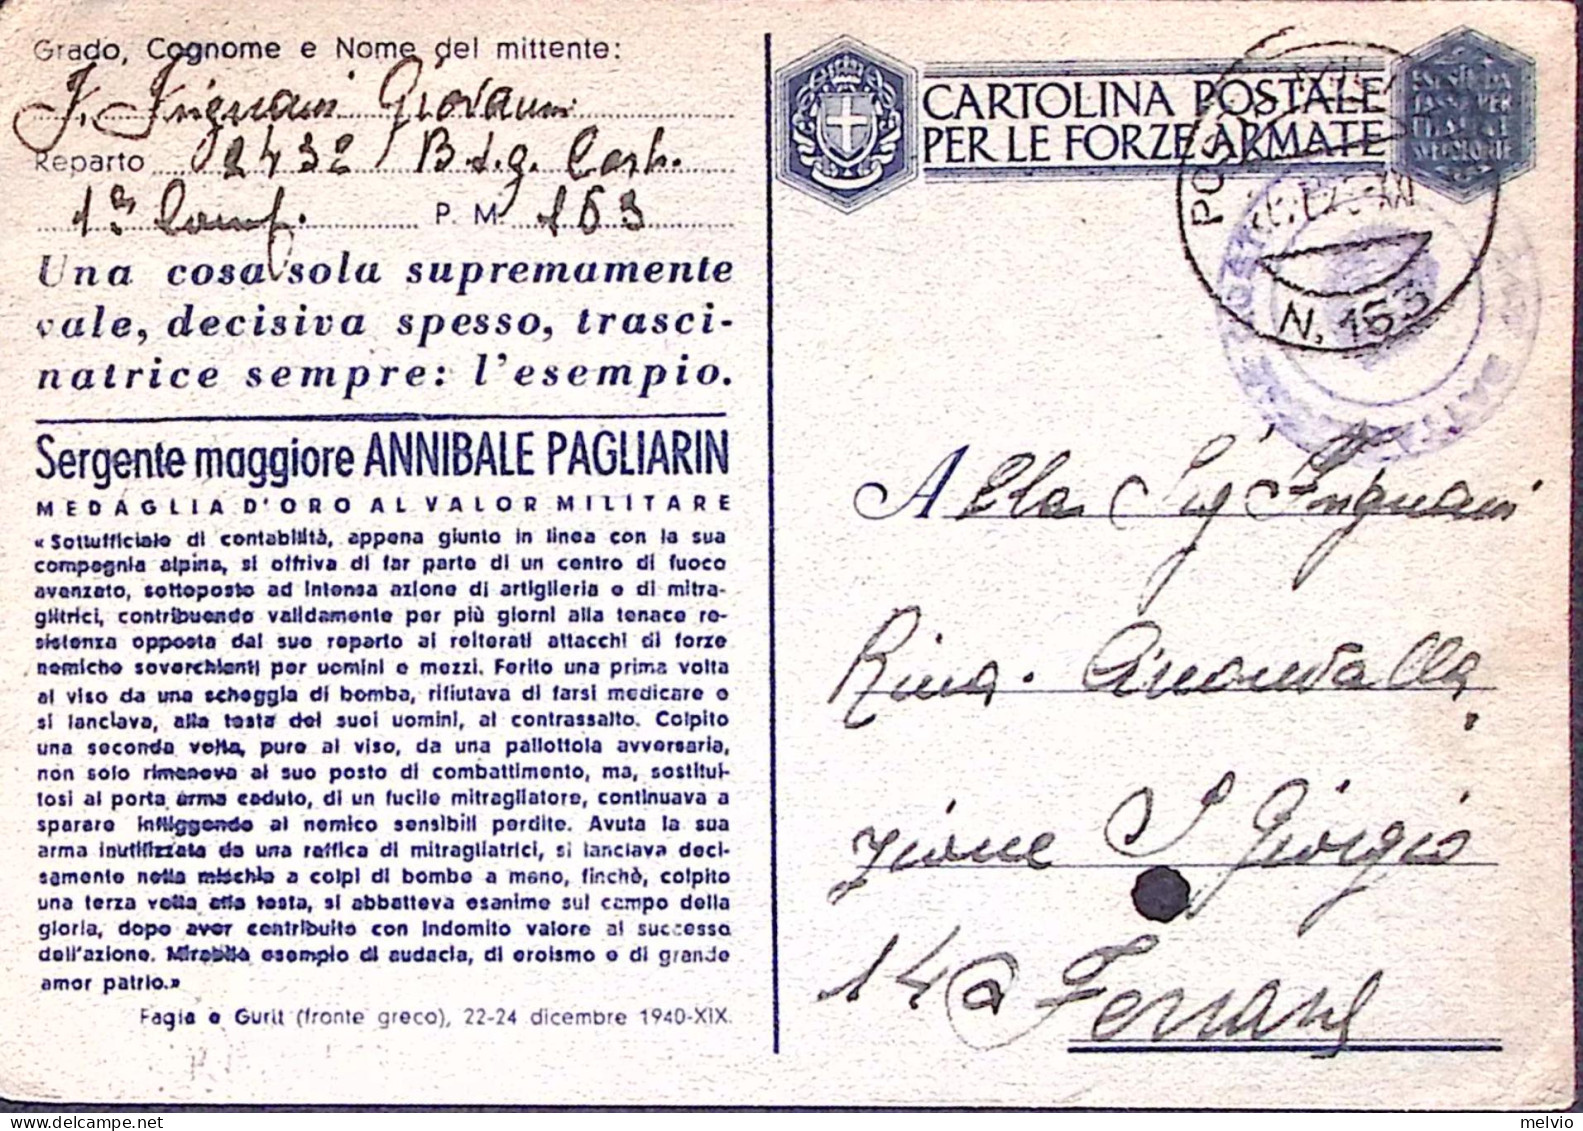 Grado, Cognome e Nome del mittente:
Giovanni
Reparto 2432 B.t.g. Cost.
P. M. 163
Una cosa sola supremamente
vale, decisiva spesso, trasci-
natrice sempre: l'esempio.
Sergente maggiore ANNIBALE PAGLIARIN
MEDAGLIA D'ORO AL VALOR MILITARE
«Sottufficiale di contabilità, appena giunto in linea con la sua
compagnia alpina, si offriva di far parte di un centro di fuoco
avanzato, sottoposto ad intensa azione di artiglieria e di mitra-
gliatrici, contribuendo validamente per più giorni alla tenace re-
sistenza opposta dal suo reparto ai reiterati attacchi di forze
nemiche soverchianti per uomini e mezzi. Ferito una prima volta
al viso da una scheggia di bomba, rifiutava di farsi medicare e
si lanciava, alla testa dei suoi uomini, al contrassalto. Colpito
una seconda volta, pure al viso, da una pallottola avversaria,
non solo rimaneva al suo posto di combattimento, ma, sostitui-
tosi al porta arma caduto, di un fucile mitragliatore, continuava a
sparare infliggendo al nemico sensibili perdite. Avuta la sua
arma inutilizzata da una raffica di mitragliatrici, si lanciava deci-
samente nella mischia a colpi di bombe a mano, finchè, colpito
una terza volta alla testa, si abbatteva esanime sul campo della
gloria, dopo aver contribuito con indomito valore al successo
dell'azione. Mirabile esempio di audacia, di eroismo e di grande
amor patrio.»
Fagia e Gurit (fronte greco), 22-24 dicembre 1940-XIX.
CARTOLINA POSTALE
PER LE FORZE ARMATE
N. 163
Alla Sig
Rina
zione S Giorgio
14
melvio
www.delcampe.net